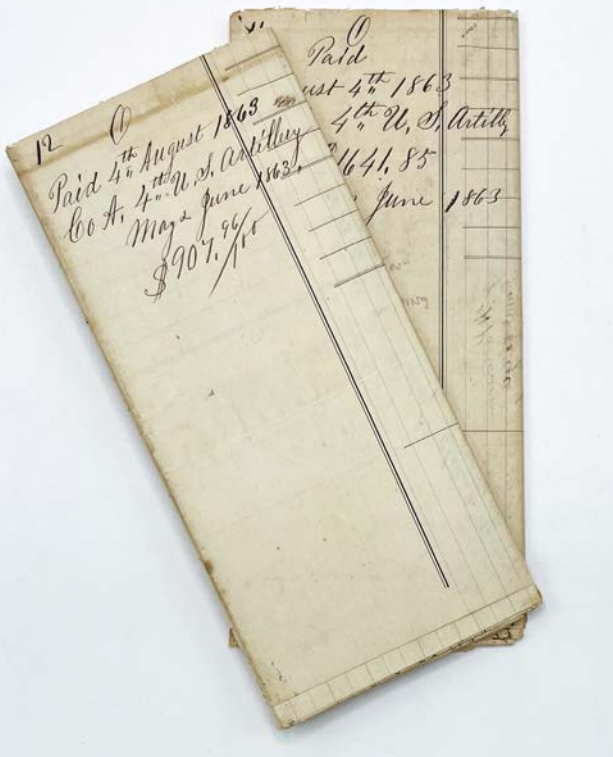 12
Paid 4th August 1863
Co A, 4th U, S, Artillery
May & June 1863.
$907,96/100
Paid
ust 4th 1863
4th U, S, Artilly
1641.85
June 1863